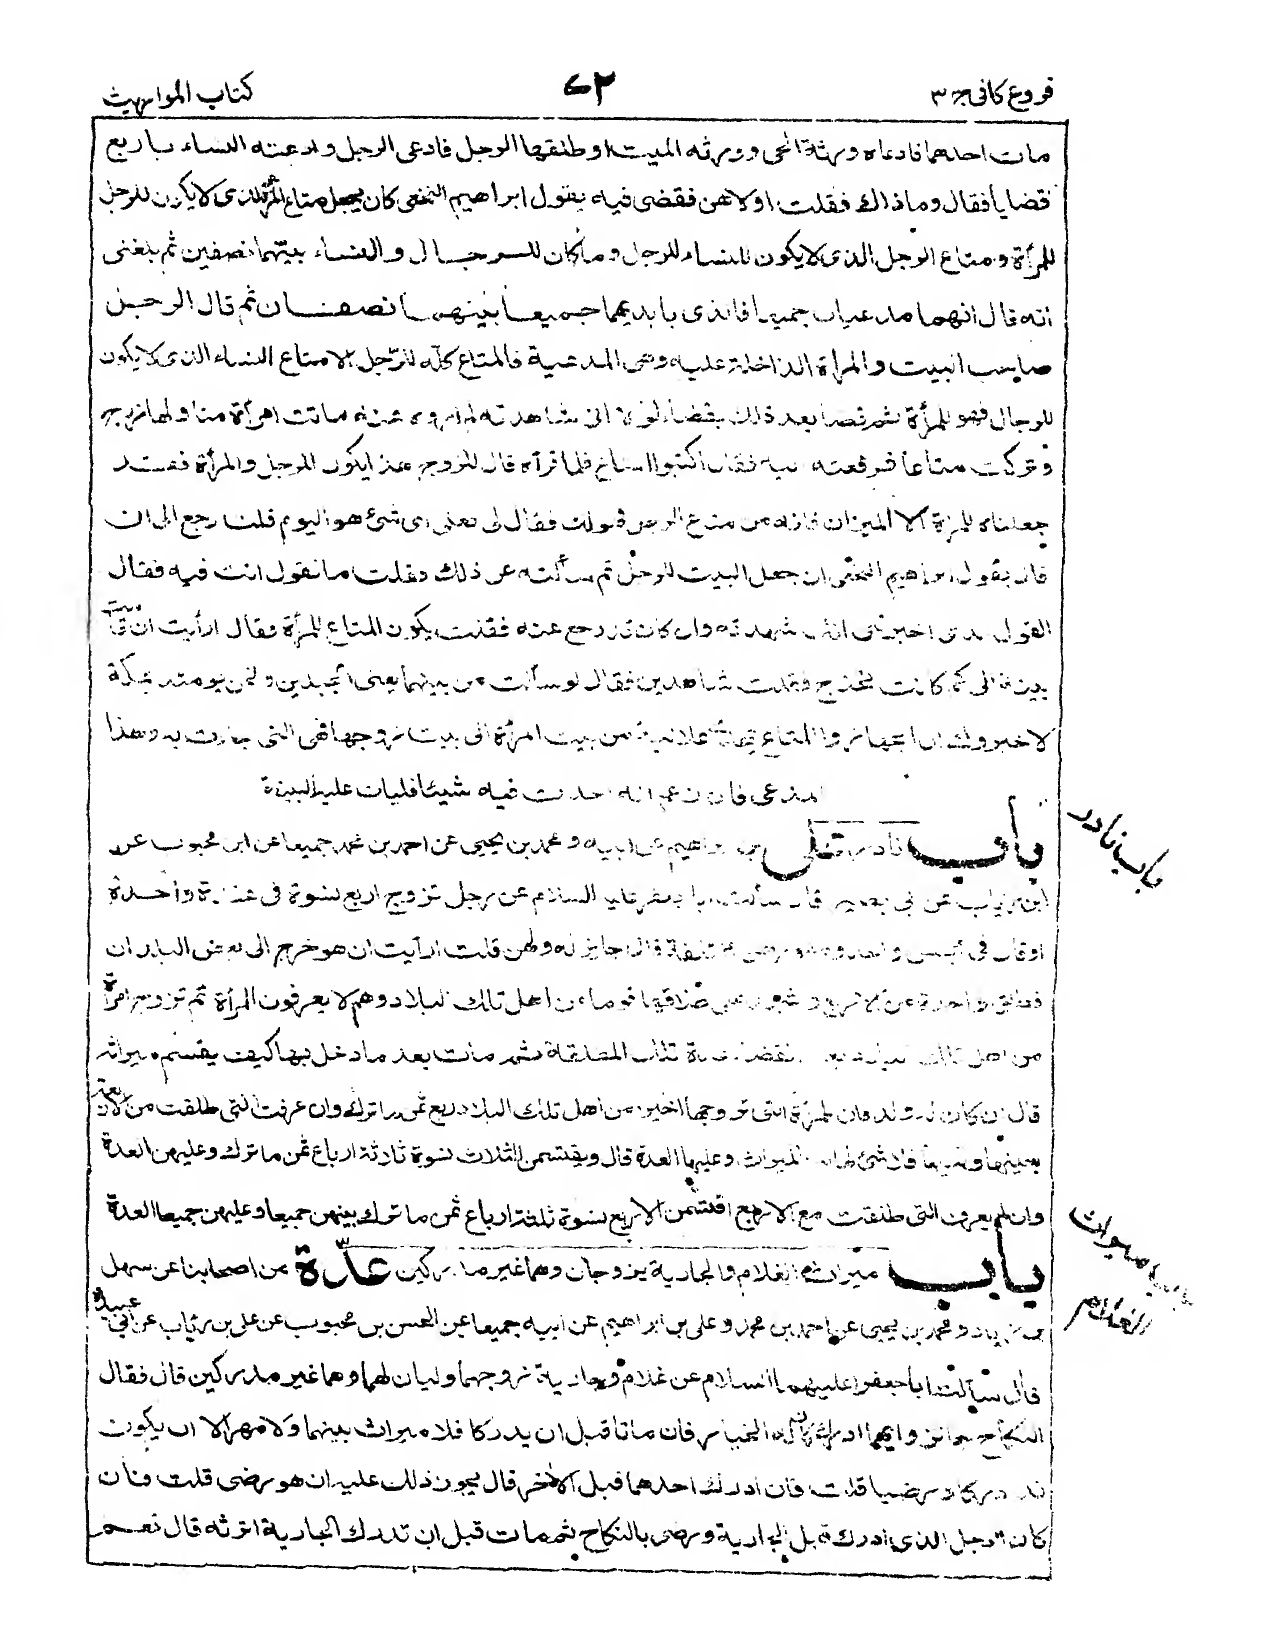 فروع كافى ج ٣
٧٢
كتاب المواريث
مات احدهما فادعاه ورثة الحى وورثه الميت اوطلقها الرجل فادعى الرجل وادعته النساء باربع
قضايا فقال وما ذاك فقلت اولاهن فقضى فيه بقول ابراهيم النخعى كان يجعل متاع المرأة الذى لا يكون للرجل
للمرأة ومتاع الرجل الذى لا يكون للنساء للرجل وما كان للرجال والنساء بينهما نصفين ثم بلغنى
انه قال انهما مدعيان جميعا فالذى بايديهما جميعا بينهما نصفان ثم قال الرجل
صاحب البيت والمرأة الداخلة عليه وهى المدعية فالمتاع كله للرجل الا متاع النساء الذى لا يكون
للرجال فهو للمرأة ثم قضا بعد ذلك بقضاء لولا انى شاهدته لم اروه عنه ماتت امرأة منا ولها زوج
وتركت متاعا فرفعته اليه فقال اكتبوا المتاع فلما قرأه قال للزوج هذا يكون للرجل والمرأة فقد
جعلناه للمرأة الا الميزان فانه من متاع الرجل فهو لك فقال لى فعلى اى شئ هو اليوم قلت رجع الى ان
قال بقول ابراهيم النخعى ان جعل البيت للرجل ثم سألته عن ذلك فقلت ما تقول انت فيه فقال
القول الذى اخبرتنى انك شهدته وان كان قد رجع عنه فقلت يكون المتاع للمرأة فقال ارأيت ان اقامت
بينة الى كم كانت تحتاج فقلت شاهدين فقال لو سألت من بينهما يعنى الجبلين ونحن يومئذ بمكة
لاخبروك ان الجهاز والمتاع يهدى علانية من بيت امرأة الى بيت زوجها فهى التى جاءت به وهذا
المدعى فان زعم انه احدث فيه شيئا فليات عليه البينة
باب نادر على بن ابراهيم عن ابيه ومحمد بن يحيى عن احمد بن محمد جميعا عن ابن محبوب عن
ابن رئاب عن ابى بصير قال سألت ابا جعفر عليه السلام عن رجل تزوج اربع نسوة فى عقدة واحدة
او قال فى مجلس واحد ومهورهن مختلفة قال جائز له ولهن قلت ارأيت ان هو خرج الى بعض البلدان
فطلق واحدة من الاربع واشهد على طلاقها قوما من اهل تلك البلاد وهم لا يعرفون المرأة ثم تزوج امرأة
من اهل تلك البلاد بعد انقضاء عدة تلك المطلقة ثم مات بعد ما دخل بها كيف يقسم ميراثه
قال ان كان له ولد فان للمرأة التى تزوجها اخيرا من اهل تلك البلاد ربع ثمن ما ترك وان عرفت التى طلقت من الاربعة
بعينها ونسبها فلا شئ لها من الميراث وعليها العدة قال ويقتسمن الثلاث نسوة ثلاثة ارباع ثمن ما ترك وعليهن العدة
وان لم يعرف التى طلقت من الاربع اقتسمن الاربع نسوة ثلثة ارباع ثمن ما ترك بينهن جميعا وعليهن جميعا العدة
باب ميراث الغلام والجارية يزوجان وهما غير مدركين عدة من اصحابنا عن سهل
بن زياد ومحمد بن يحيى عن احمد بن محمد وعلى بن ابراهيم عن ابيه جميعا عن الحسن بن محبوب عن على بن رئاب عن ابى عبيدة
قال سألت ابا جعفر عليهما السلام عن غلام وجارية زوجهما وليان لهما وهما غير مدركين قال فقال
النكاح جائز وايهما ادرك كان له الخيار فان ماتا قبل ان يدركا فلا ميراث بينهما ولا مهر الا ان يكون
قد ادركا ورضيا قلت فان ادرك احدهما قبل الاخر قال يجوز ذلك عليه ان هو رضى قلت فان
كان الرجل الذى ادرك قبل الجارية ورضى بالنكاح ثم مات قبل ان تدرك الجارية اترثه قال نعم
باب نادر
باب ميراث
الغلام